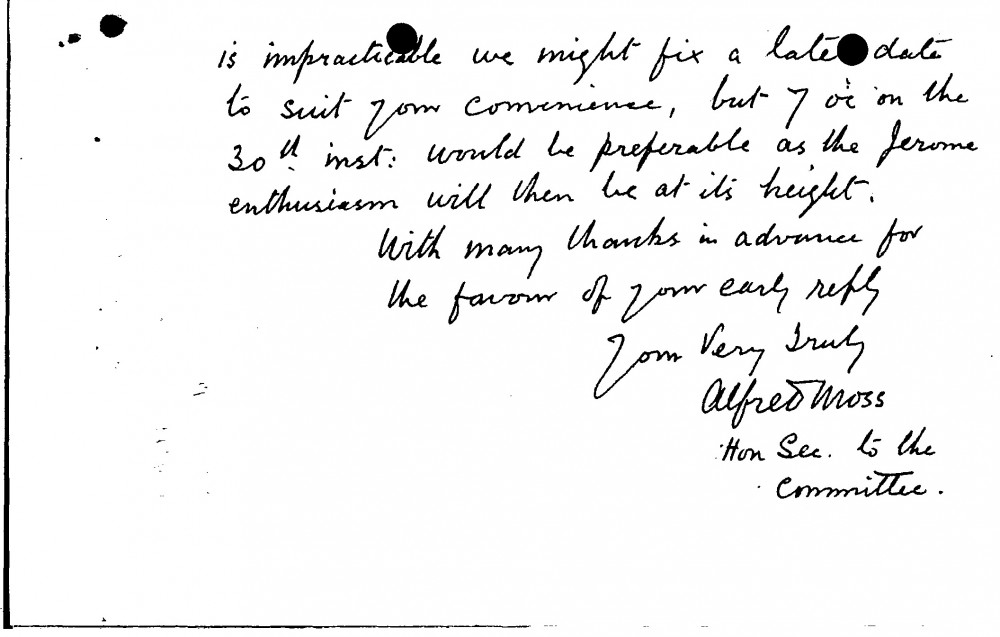 is impracticable we might fix a later date
to suit your convenience, but 7 oc on the
30th inst: would be preferable as the Jerome
enthusiasm will then be at its height.
With many thanks in advance for
the favour of your early reply
Yours Very Truly
Alfred Moss
Hon Sec. to the
Committee.